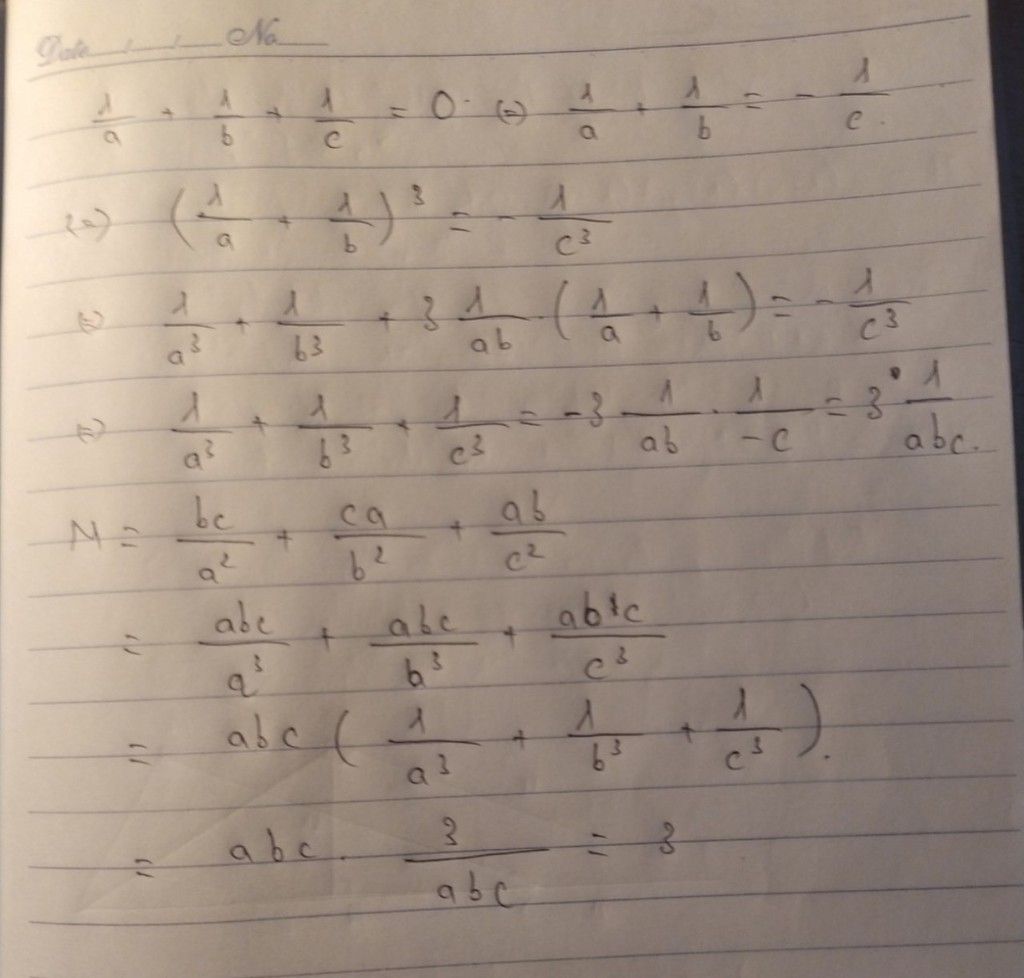 Date / / No
1/a + 1/b + 1/c = 0 (=) 1/a + 1/b = - 1/c.
(=) (1/a + 1/b)³ = - 1/c³
(=) 1/a³ + 1/b³ + 3 1/ab · (1/a + 1/b) = - 1/c³
(=) 1/a³ + 1/b³ + 1/c³ = -3 1/ab · 1/-c = 3 · 1/abc.
M = bc/a² + ca/b² + ab/c²
= abc/a³ + abc/b³ + abc/c³
= abc (1/a³ + 1/b³ + 1/c³).
= abc · 3/abc = 3